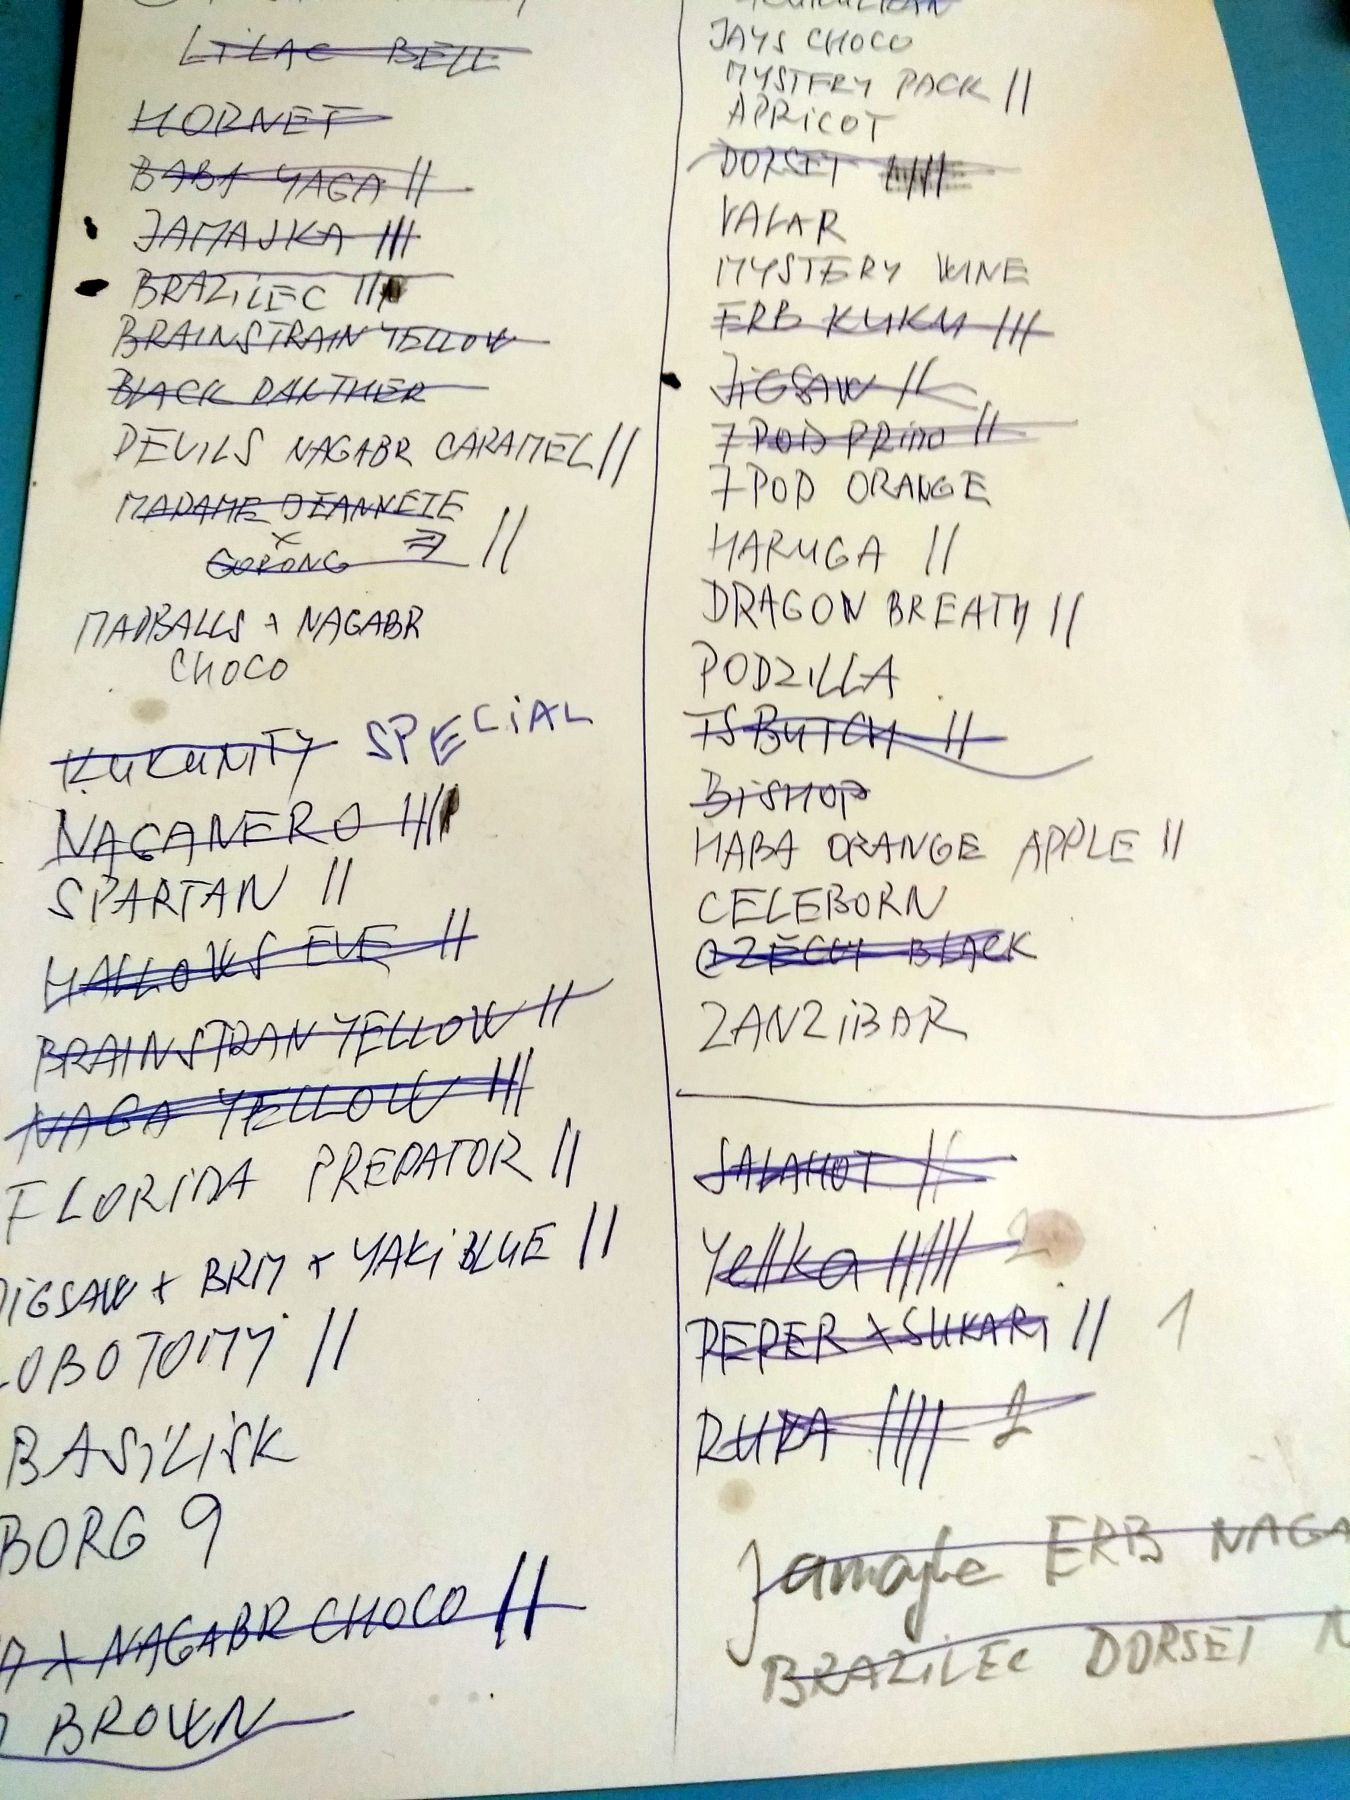 LILAC BELL
HORNET
BABA YAGA ||
JAMAJKA |||
BRAZILEC |||
BRAINSTRAIN YELLOW
BLACK PANTHER
DEVILS NAGABR CARAMEL ||
MADAME JEANNETE
x
GORONG => ||
MADBALLS + NAGABR
CHOCO
KUKUNITY SPECIAL
NAGANERO ||||
SPARTAN ||
HALLOWS EVE ||
BRAINSTRAN YELLOW ||
NAGA YELLOW |||
FLORIDA PREDATOR ||
JIGSAW + BRM + YAKI BLUE ||
LOBOTOMY ||
BASILISK
BORG 9
X NAGABR CHOCO ||
BROWN
JAYS CHOCO
MYSTERY PACK ||
APRICOT
DORSET
VALAR
MYSTERY WINE
ERB KUKU |||
JIGSAW ||
7 POD PRIMO ||
7 POD ORANGE
HARUGA ||
DRAGON BREATH ||
PODZILLA
TS BUTCH ||
BISHOP
HABA ORANGE APPLE ||
CELEBORN
CZECH BLACK
ZANZIBAR
SALAHOT ||
Yellka ||||| 2
PEPER X SUKARI || 1
RUKA |||| 2
ERB NAGA
BRAZILEC DORSET N